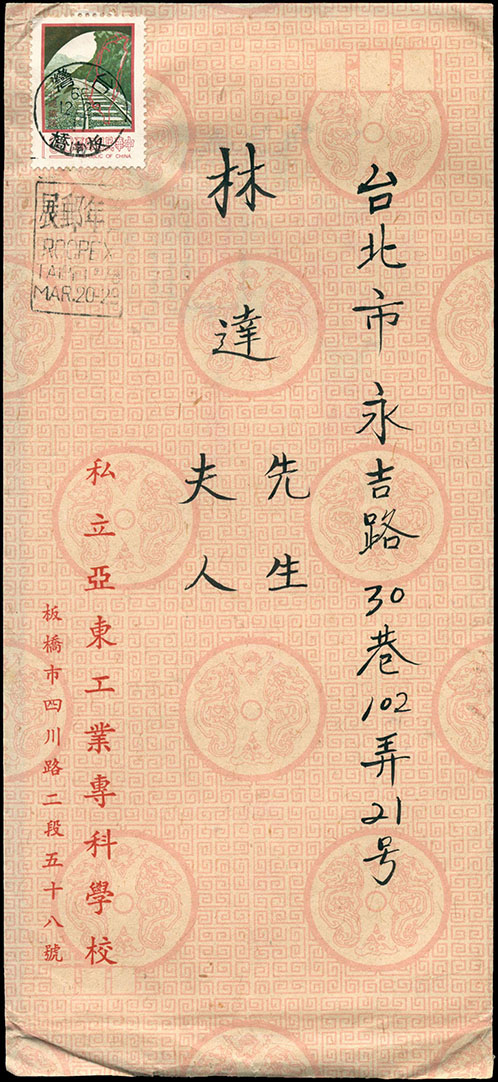 台北市永吉路30巷102弄21号
林達
先生
夫人
私立亞東工業專科學校
板橋市四川路二段五十八號
REPUBLIC OF CHINA
展郵年
ROCPEX
TAIPEI
MAR.20-29